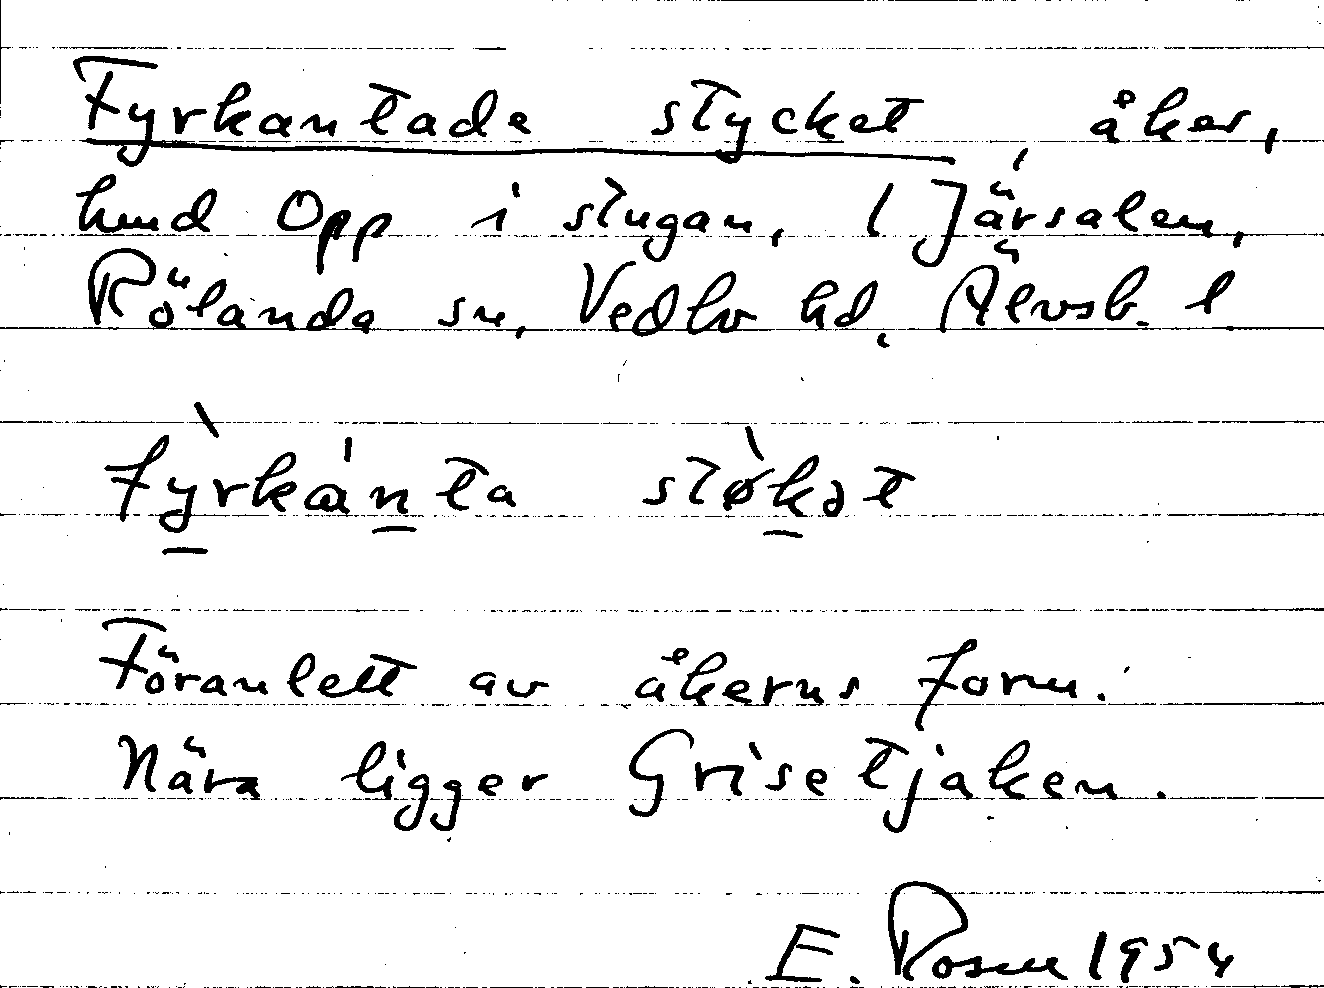 Fyrkantade stycket, åker,
hmd Opp i stugan, 1 Järsalem,
Rölanda sn, Vedbo hd, Älvsb. l.
fỳrkán̲ta stø̀k̲ət
Föranlett av åkerns form.
Nära ligger Grisetjaken.
E. Rosen 1954